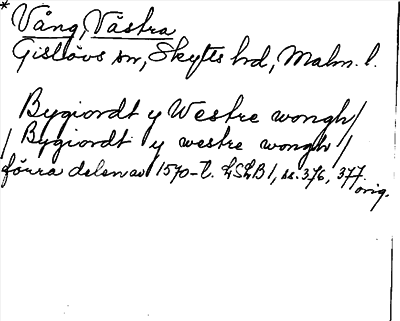 * Vång, Västra
Gislövs sn, Skytts hd, Malm. l.
Bygiordt y Westre wongh/
/ Bygiordt y westre wongh /
förra delen av 1570-t. LSLB 1, ss. 376, 377.
orig.